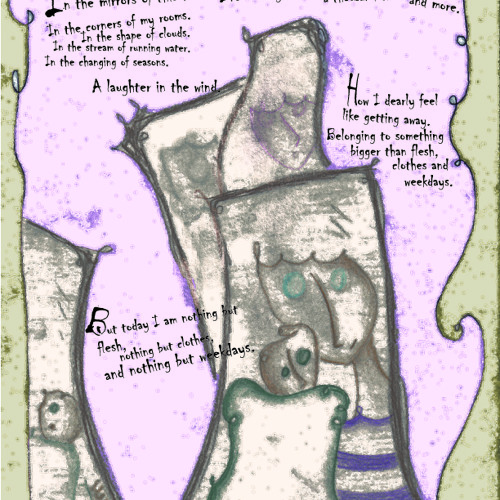 In the mirrors of this
and more.
In the corners of my rooms.
In the shape of clouds.
In the stream of running water.
In the changing of seasons.
A laughter in the wind
How I dearly feel
like getting away.
Belonging to something
bigger than flesh,
clothes and
weekdays.
But today I am nothing but
flesh,
nothing but clothes,
and nothing but weekdays.